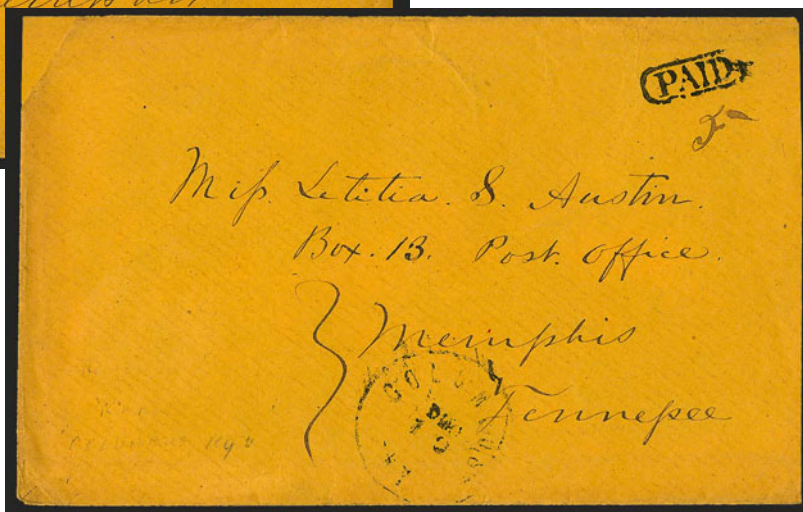 PAID
5
Miss. Letitia. S. Austin.
Box. 13. Post. Office.
Memphis
Tennessee
COLUMBUS
KY.